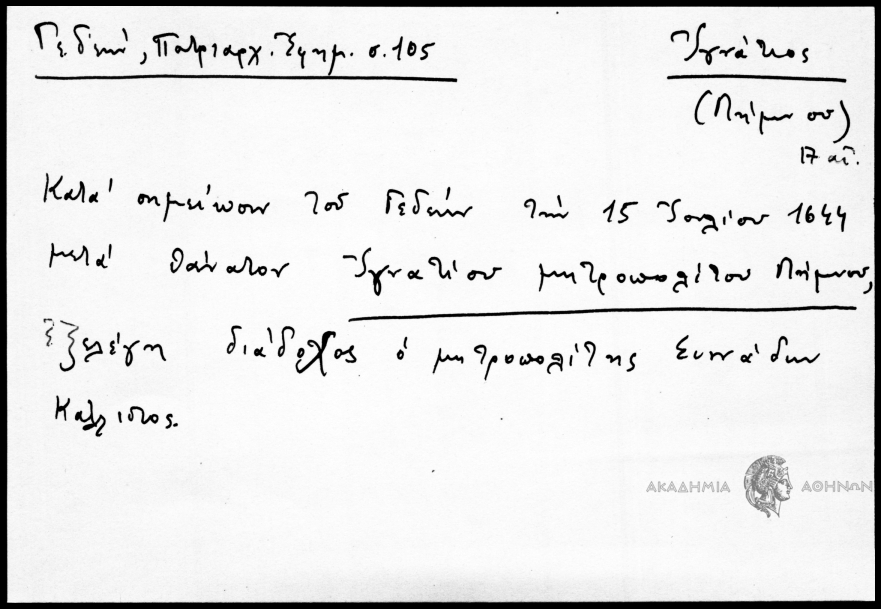 Γεδεών, Πατριαρχ. Ἐφημ. σ. 105
Ἰγνάτιος
(Λήμνου)
17 αἰ.
Κατά σημείωσιν τοῦ Γεδεών τήν 15 Ἰουλίου 1644
μετά θάνατον Ἰγνατίου μητροπολίτου Λήμνου,
ἐξελέγη διάδοχος ὁ μητροπολίτης Συννάδων
Κάλλιστος.
ΑΚΑΔΗΜΙΑ ΑΘΗΝΩΝ